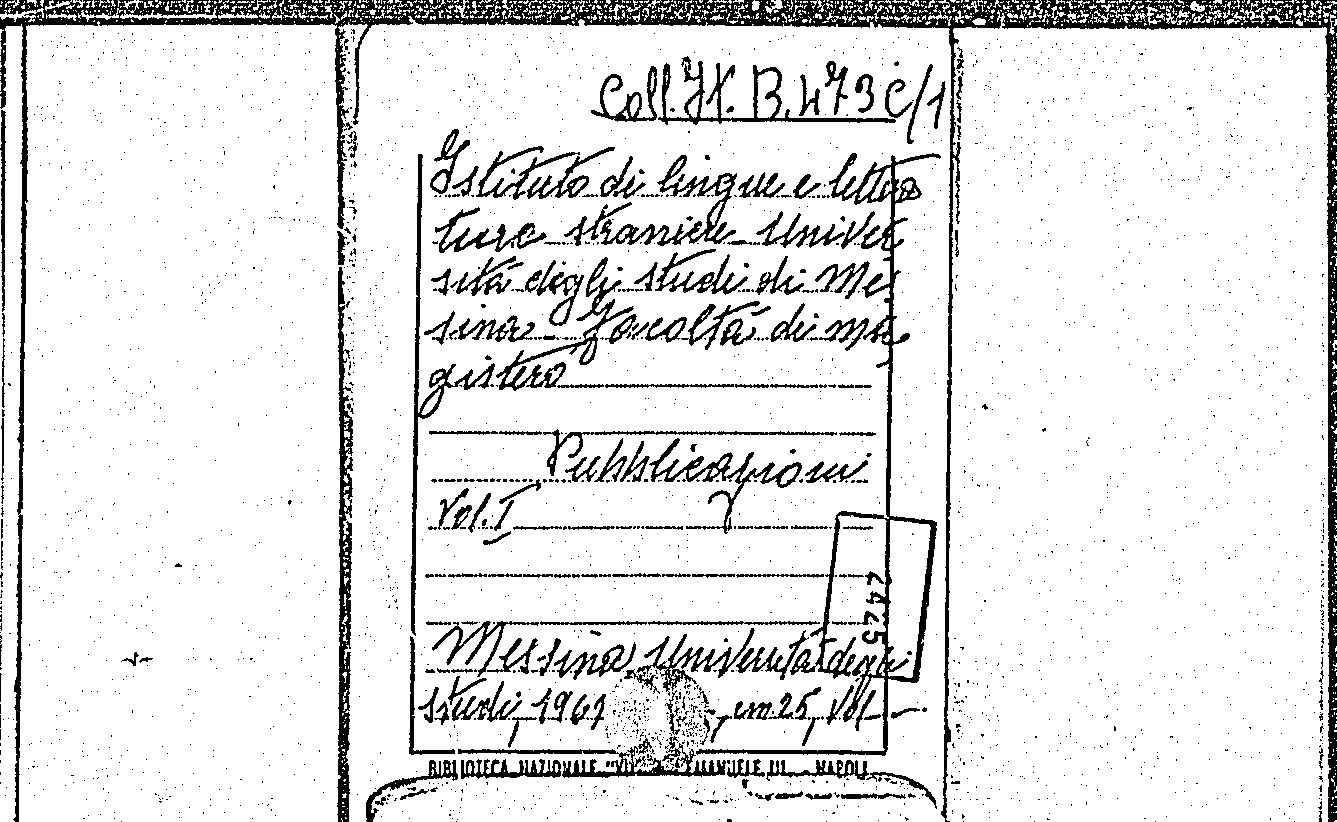 Coll. It. B. 473 C/1
Istituto di lingue e lettera
ture straniere - Univer
sità degli studi di Mes
sina - Facoltà di ma
gistero
Pubblicazioni
Vol. I
2425
Messina, Università degli
studi, 1967 , cm 25, Vol
BIBLIOTECA NAZIONALE "VITT. EMANUELE III. - NAPOLI